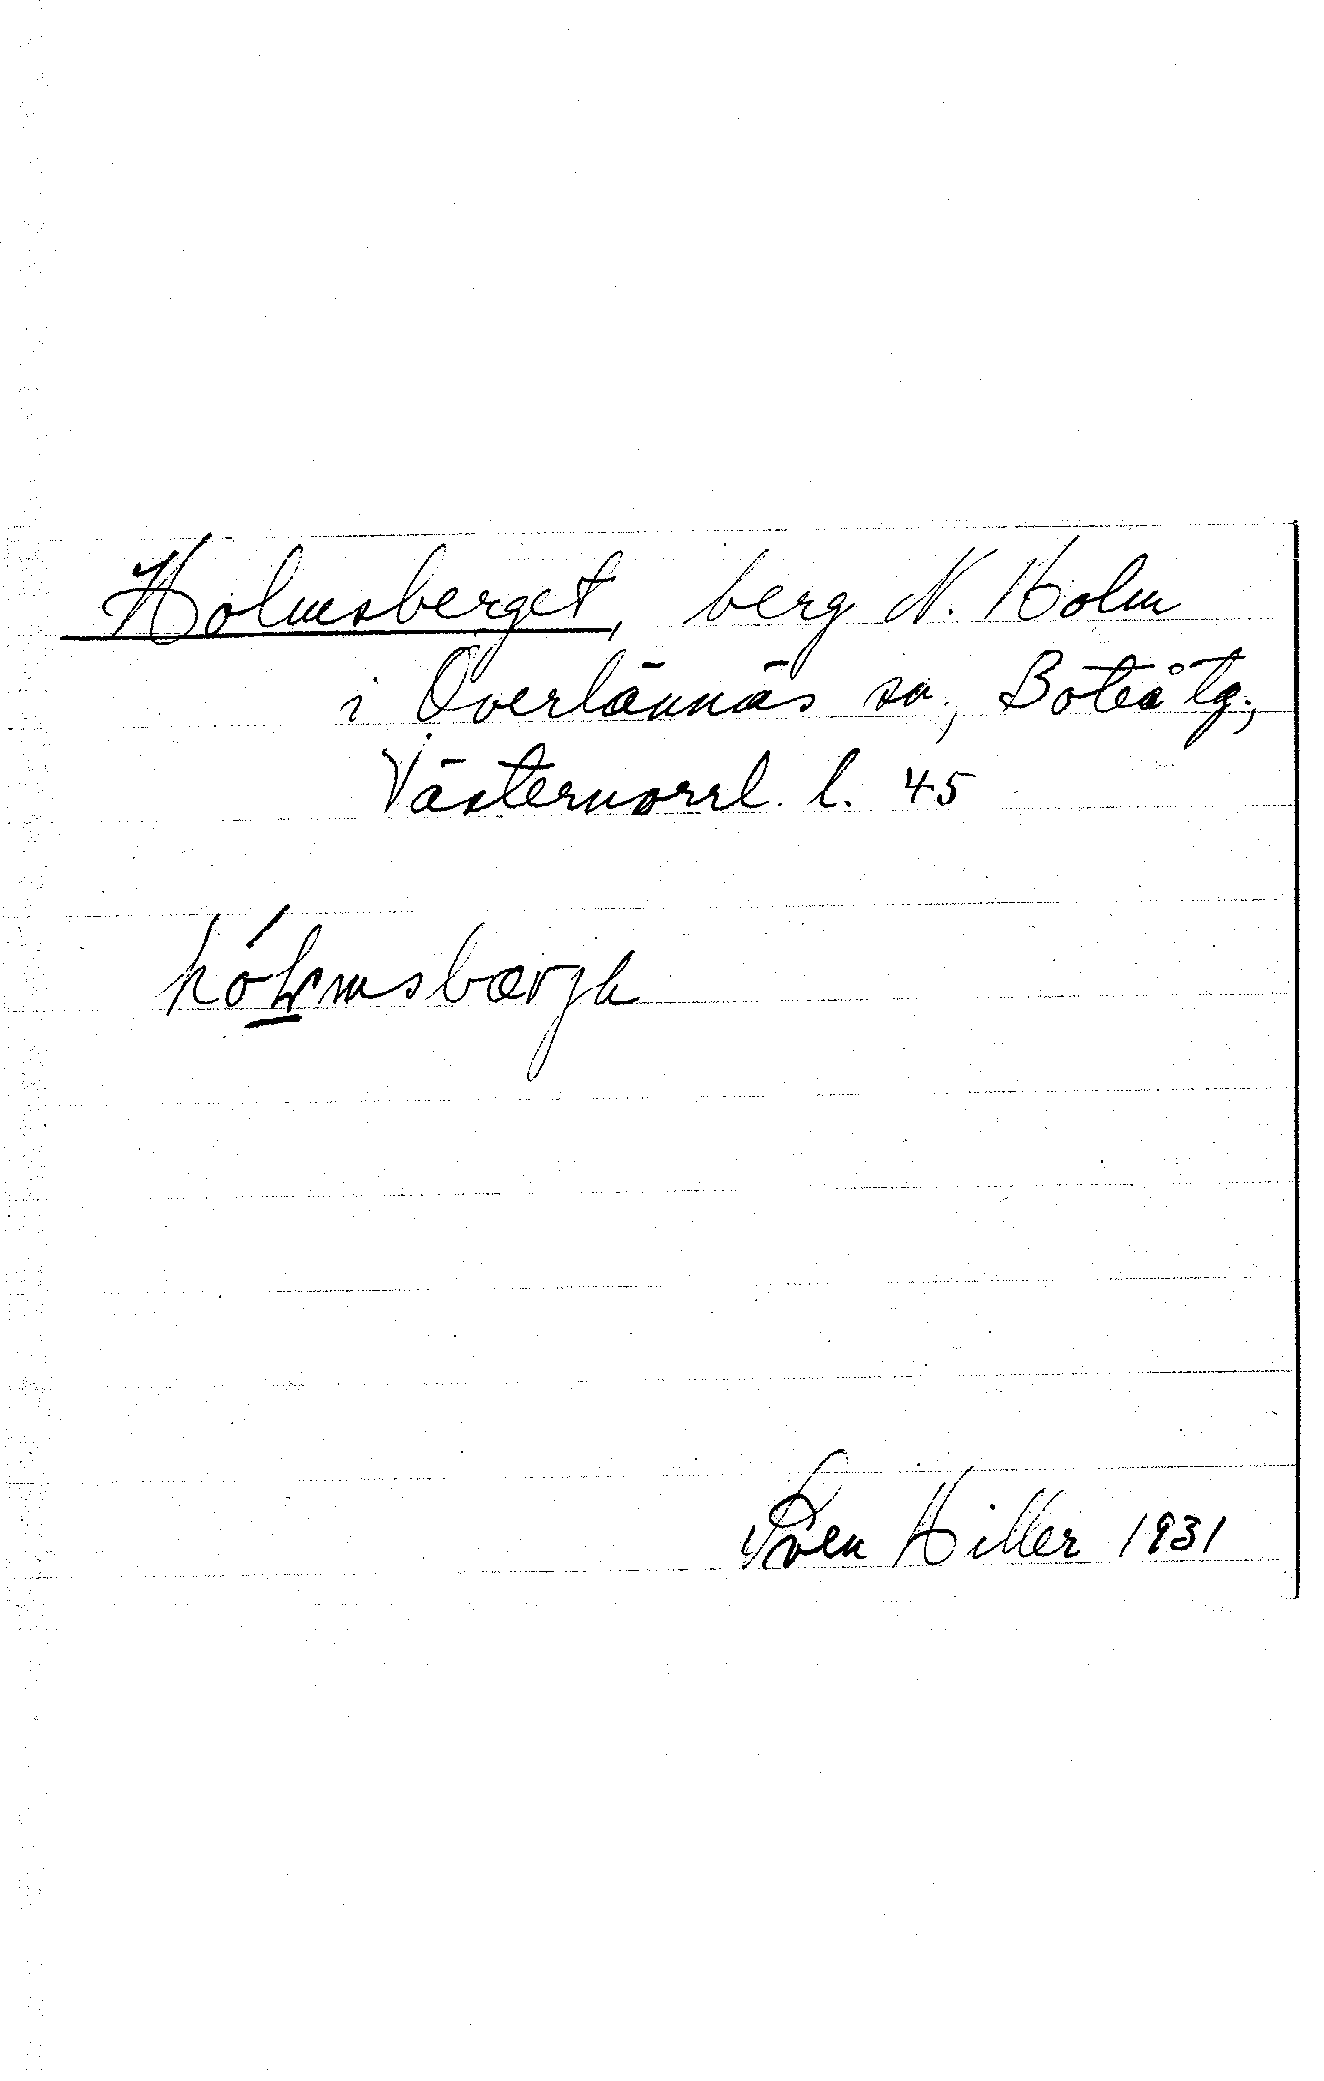 Holmsberget, berg N. Holm
i Överlännäs sn, Boteå tg,
Västernorrl. l. 45
Sven Hiller 1931